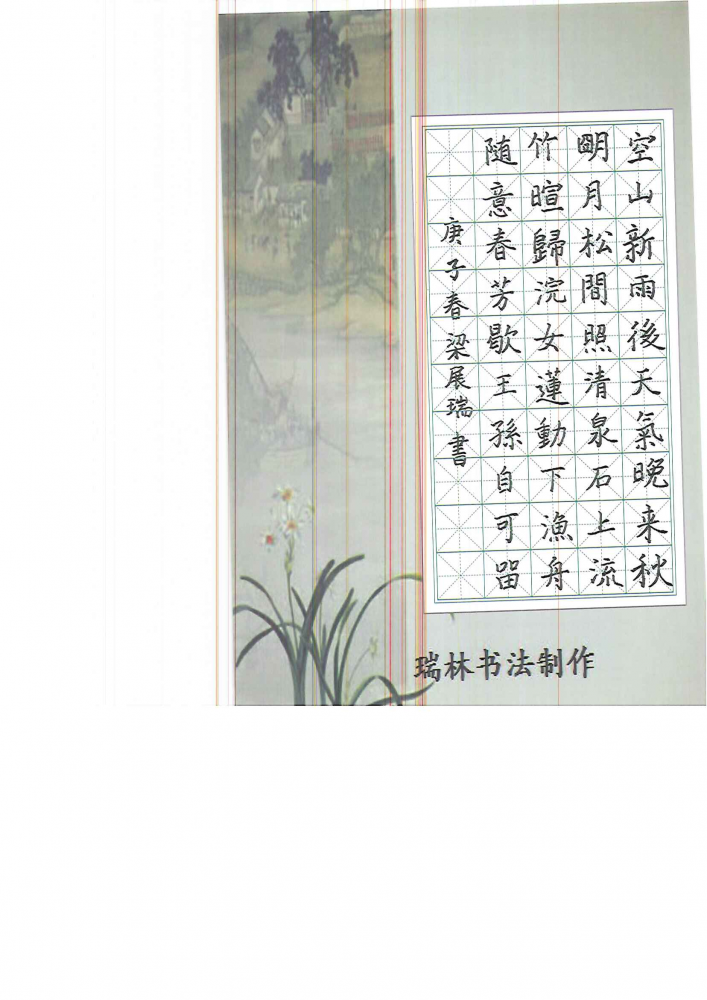 空山新雨後天氣晚来秋
明月松間照清泉石上流
竹暄歸浣女蓮動下漁舟
随意春芳歇王孫自可留
庚子春梁展瑞書
瑞林书法制作